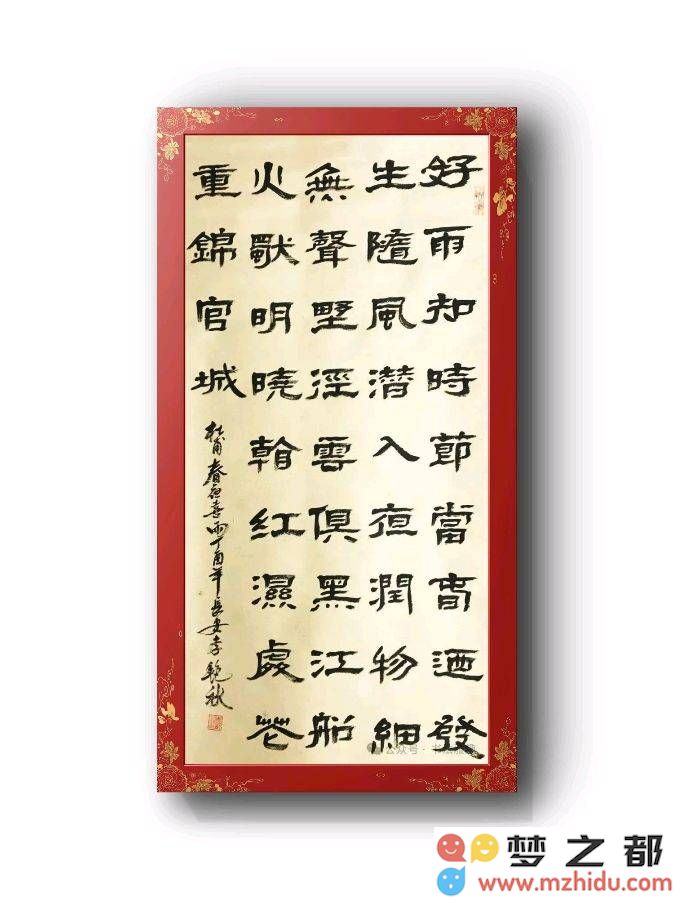 好雨知時節當春迺發
生隨風潜入夜潤物細
無聲墅徑雲俱黑江船
火獨明曉看紅濕處花
重錦官城
杜甫春夜喜雨丁酉年長安李艷秋
公众号
梦之都
www.mzhidu.com